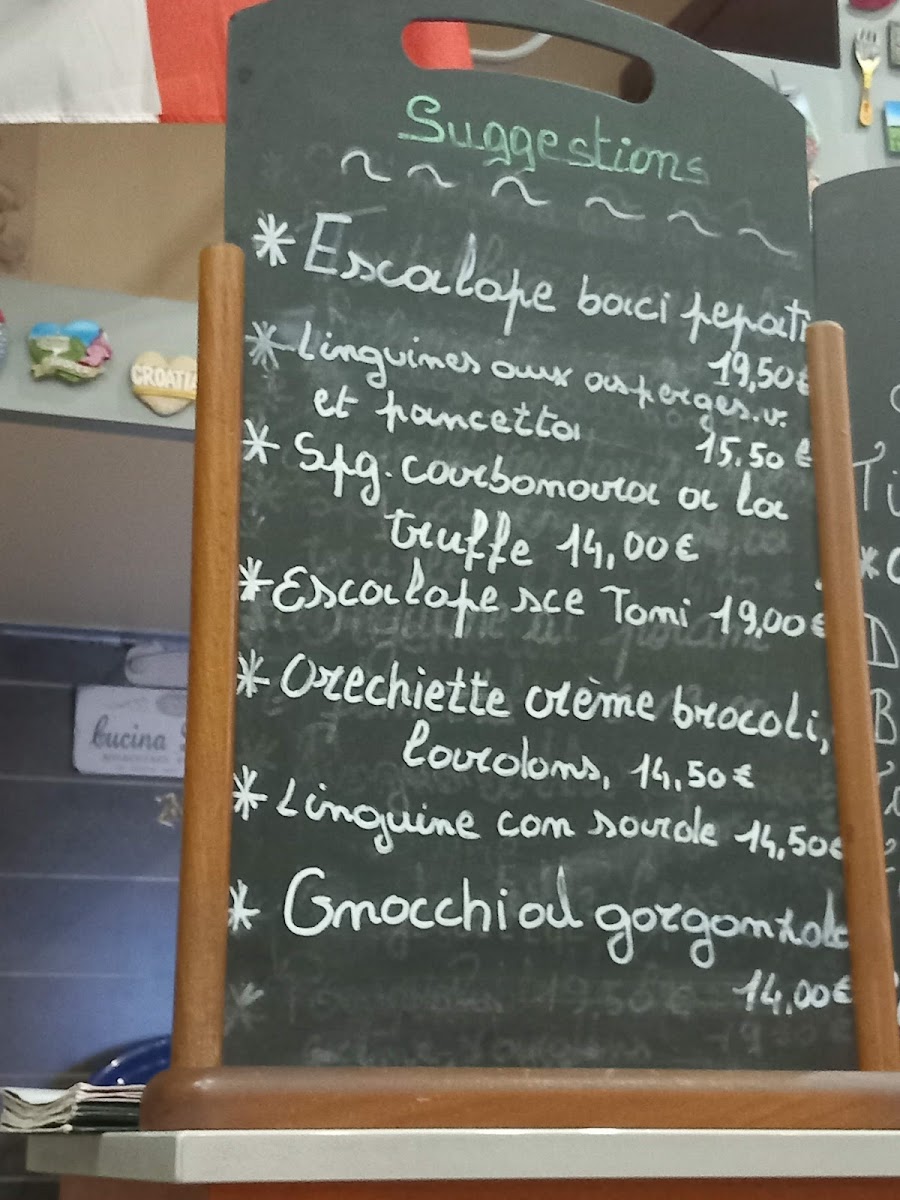 Suggestions
~ ~ ~ ~ ~ ~
* Escalope baci pepati
19,50€
* Linguines aux asperges.v.
et pancetta 15,50 €
* Spg. carbonara a la
truffe 14,00€
* Escalope sce Tomi 19,00€
* Orechiette crème brocoli,
lardons, 14,50€
* Linguine con sarde 14,50€
* Gnocchi al gorgonzola
14,00€
CROATIA
Cucina